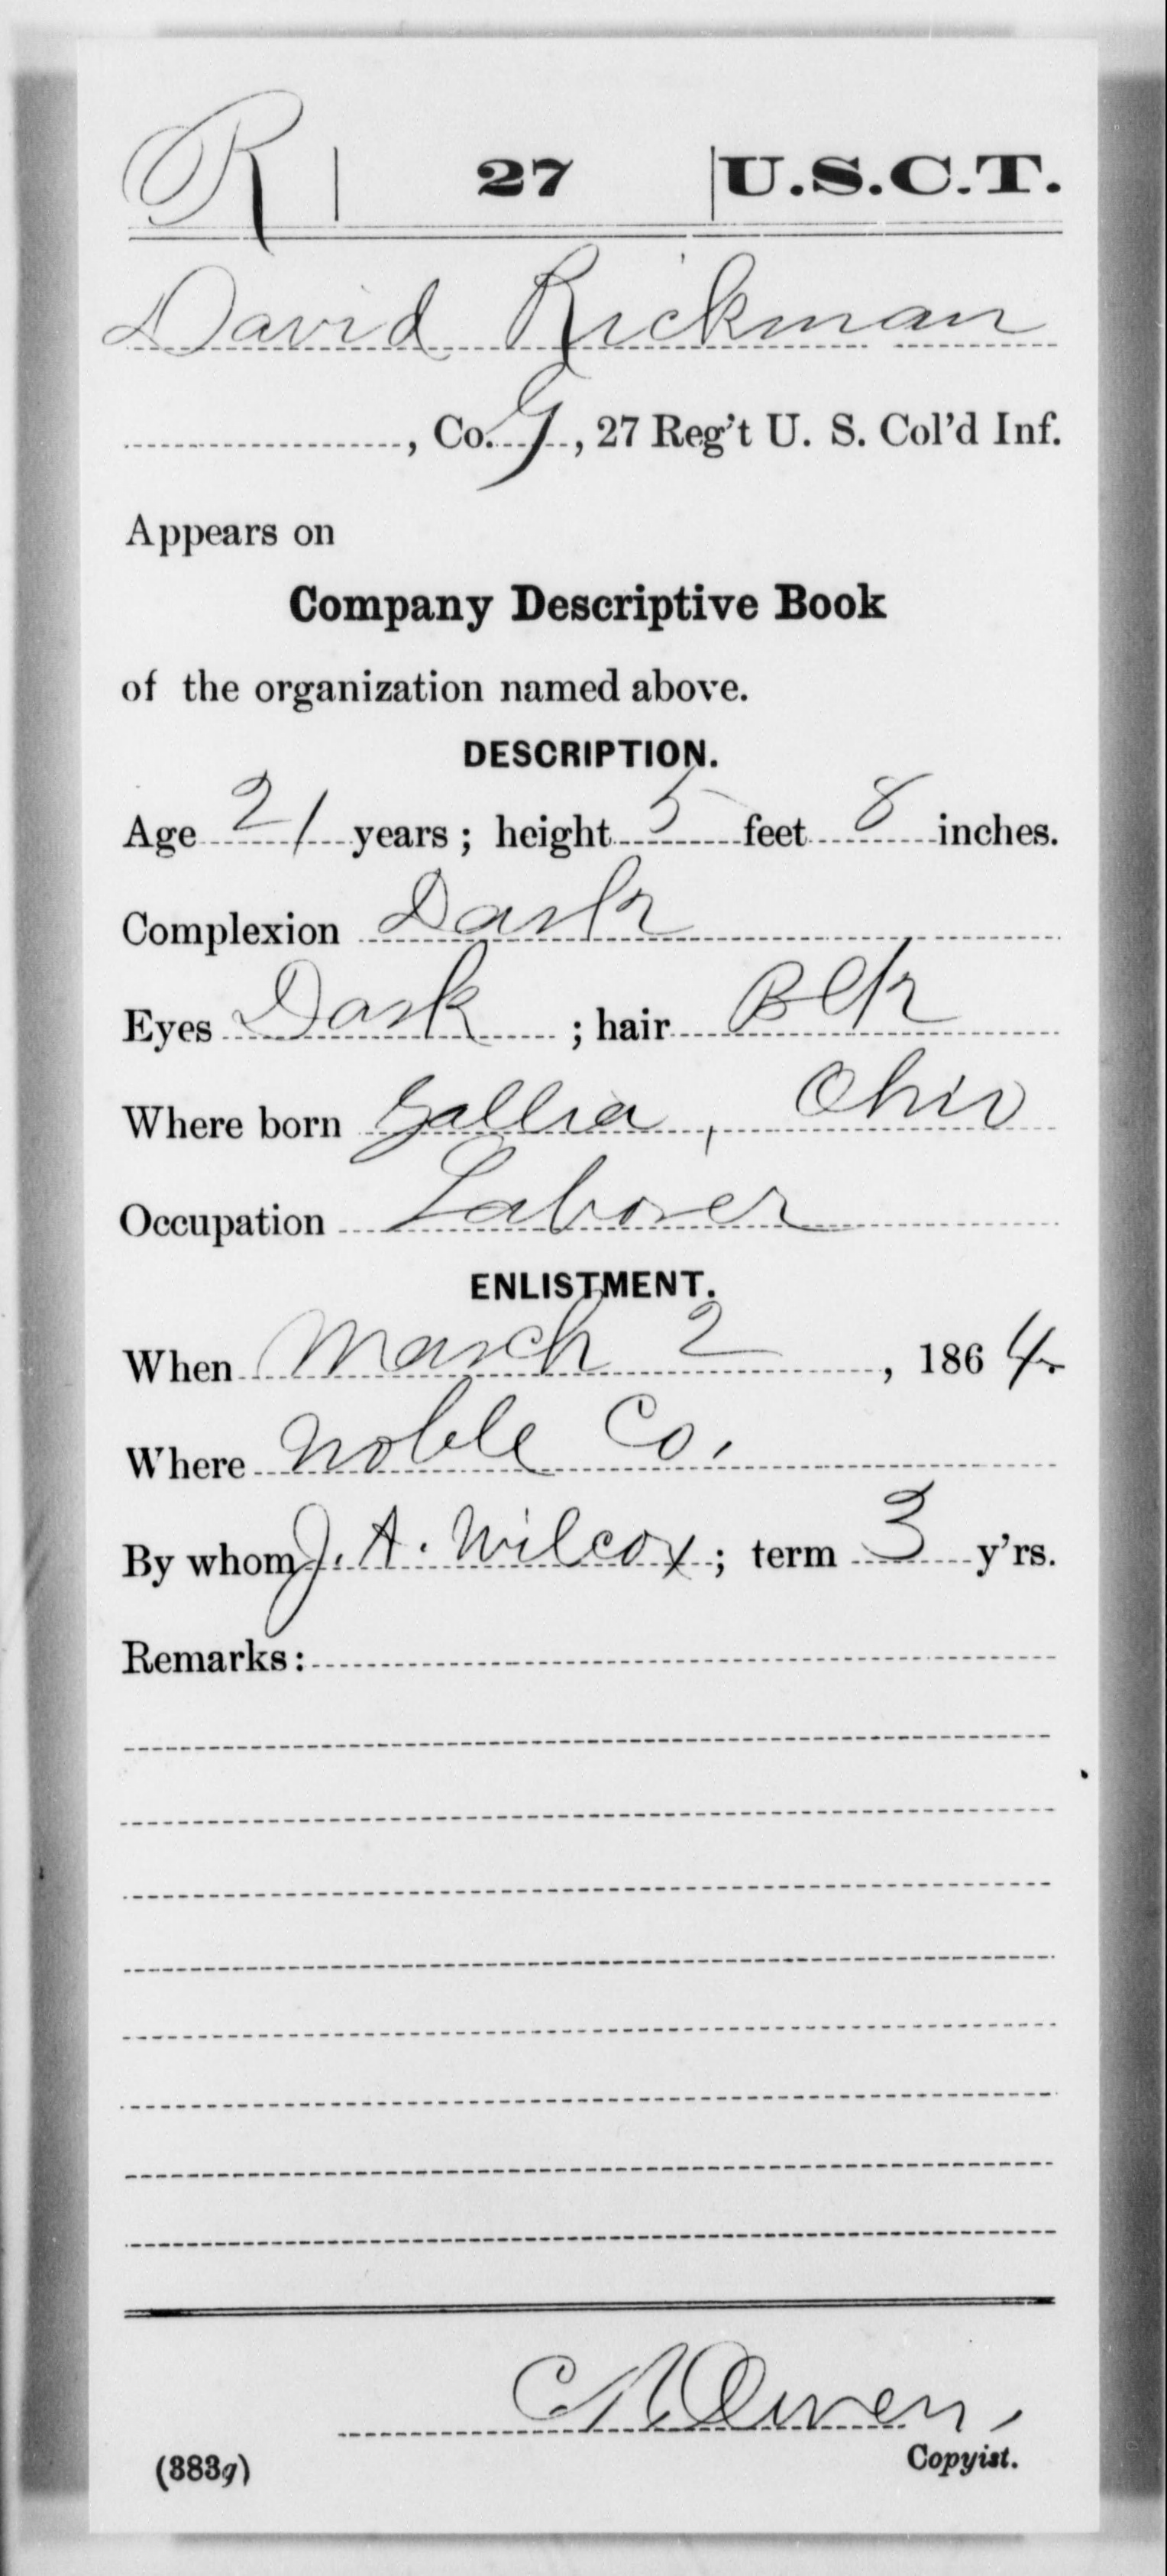 R | 27 | U.S.C.T.
David Rickman
, Co. G, 27 Reg't U. S. Col'd Inf.
Appears on
Company Descriptive Book
of the organization named above.
DESCRIPTION.
Age 21 years; height 5 feet 8 inches.
Complexion Dark
Eyes Dark ; hair Blk
Where born Gallia, Ohio
Occupation Laborer
ENLISTMENT.
When March 2, 1864.
Where Noble Co.
By whom J. A. Wilcox; term 3 y'rs.
Remarks:
Owen,
(383g) Copyist.